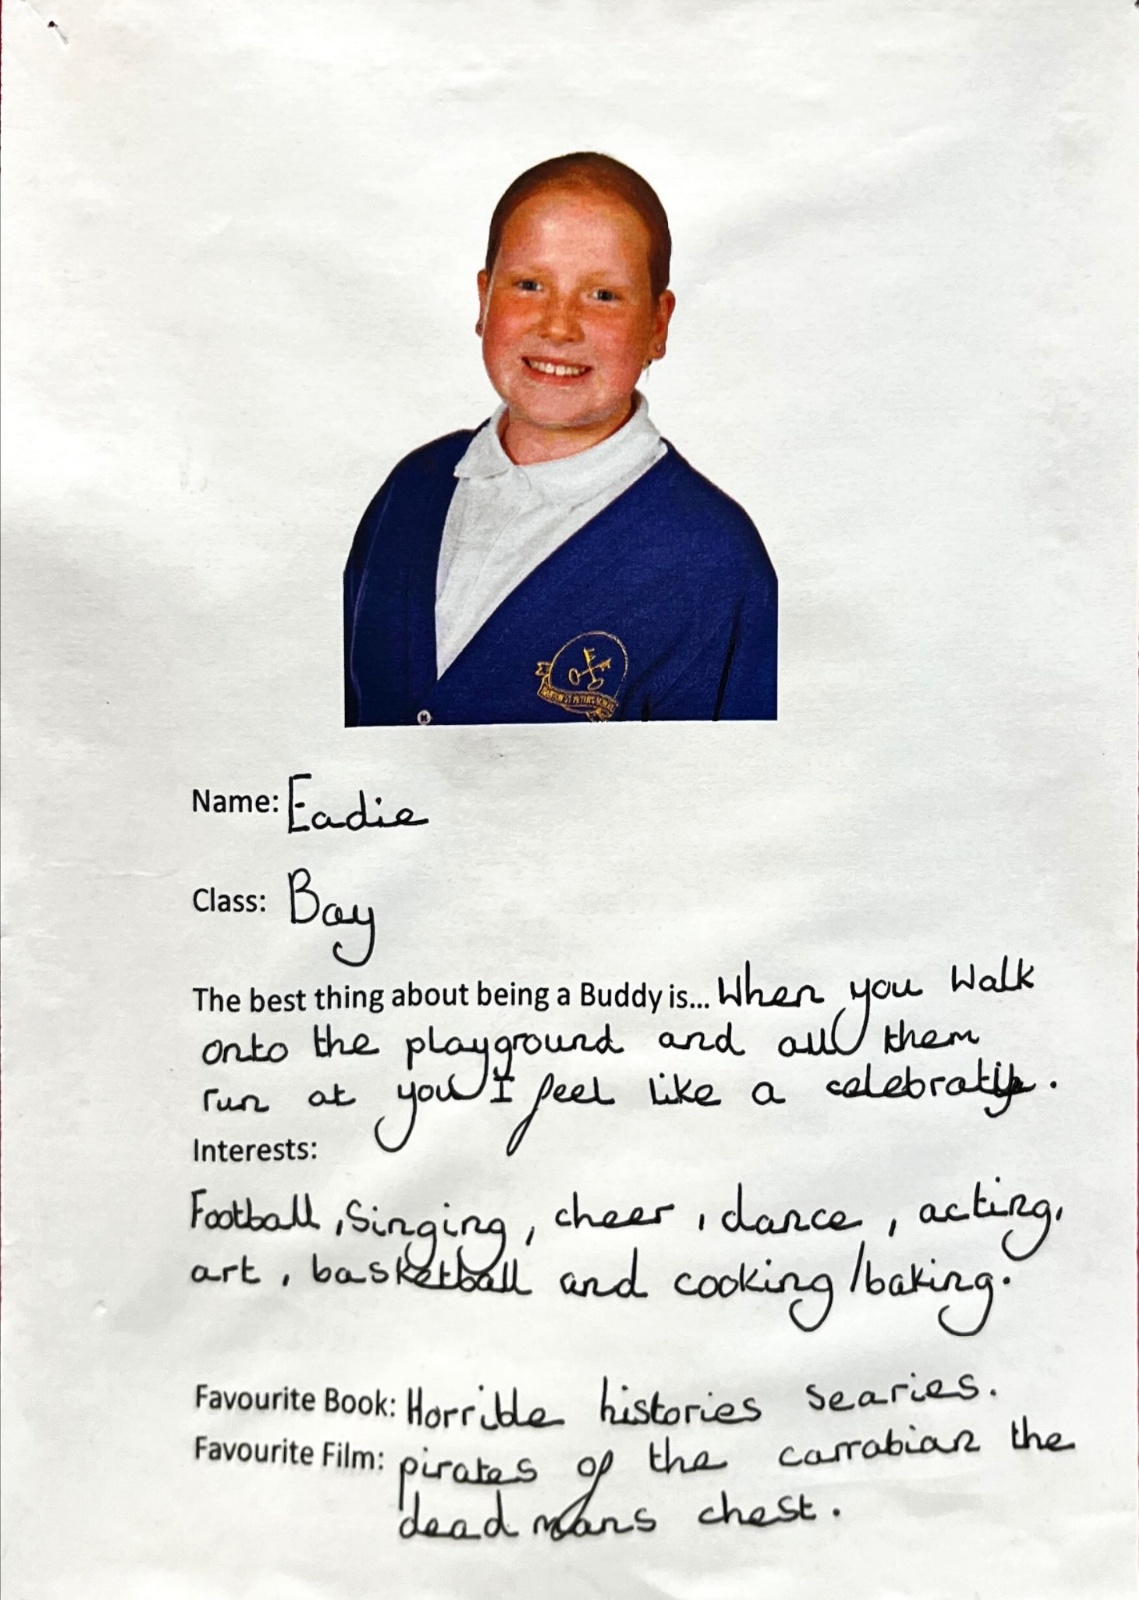 Name: Eadie
Class: Bay
The best thing about being a Buddy is... When you Walk
onto the playground and all them
run at you I feel like a
Interests:
Football, Singing, cheer, dance, acting,
art, basketball and cooking/baking.
Favourite Book: Horrible histories searies.
Favourite Film: pirates of the carrabian the
dead mans chest.